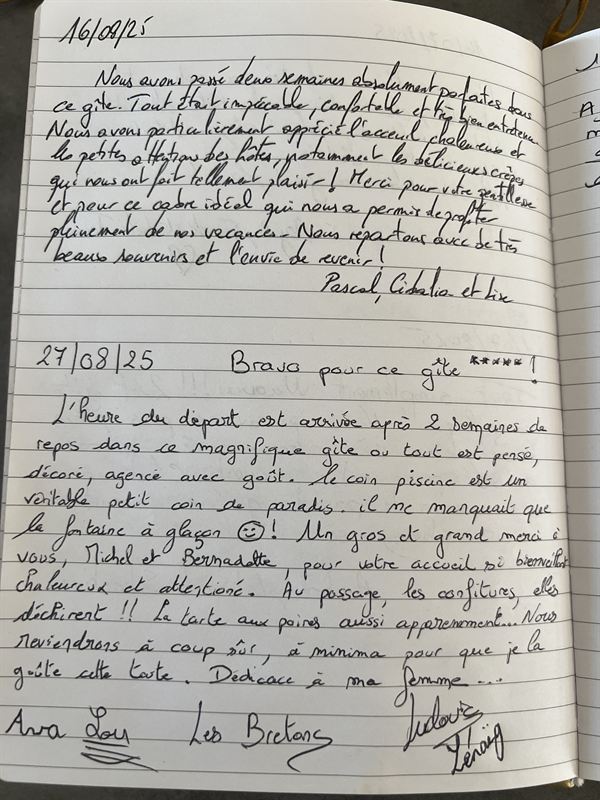 16/08/25
Nous avons passé deux semaines absolument parfaites dans
ce gîte. Tout était impeccable, confortable et très bien entretenu
Nous avons particulièrement apprécié l'acceuil chaleureux et
les petites attentions des hôtes, notamment les délicieuses crêpes
qui nous ont fait tellement plaisir! Merci pour votre gentillesse
et pour ce cadre idéal qui nous a permis de profiter
pleinement de nos vacances. Nous repartons avec de très
beaux souvenirs et l'envie de revenir!
Pascal, Cidalia et Lise
27/08/25 Bravo pour ce gîte *****!
L'heure du départ est arrivée après 2 semaines de
repos dans ce magnifique gîte ou tout est pensé,
décoré, agencé avec goût. Le coin piscine est un
véritable petit coin de paradis. il ne manquait que
la fontaine à glaçon ☺! Un gros et grand merci à
vous, Michel et Bernadette, pour votre accueil si bienveillant
chaleureux et attentioné. Au passage, les confitures, elles
déchirent!! La tarte aux poires aussi apparemment... Nous
reviendrons à coup sûr, à minima pour que je la
goûte cette tarte. Dédicace à ma femme...
Ava Lou Les Bretons Ludovic
Lénaïg
1
A